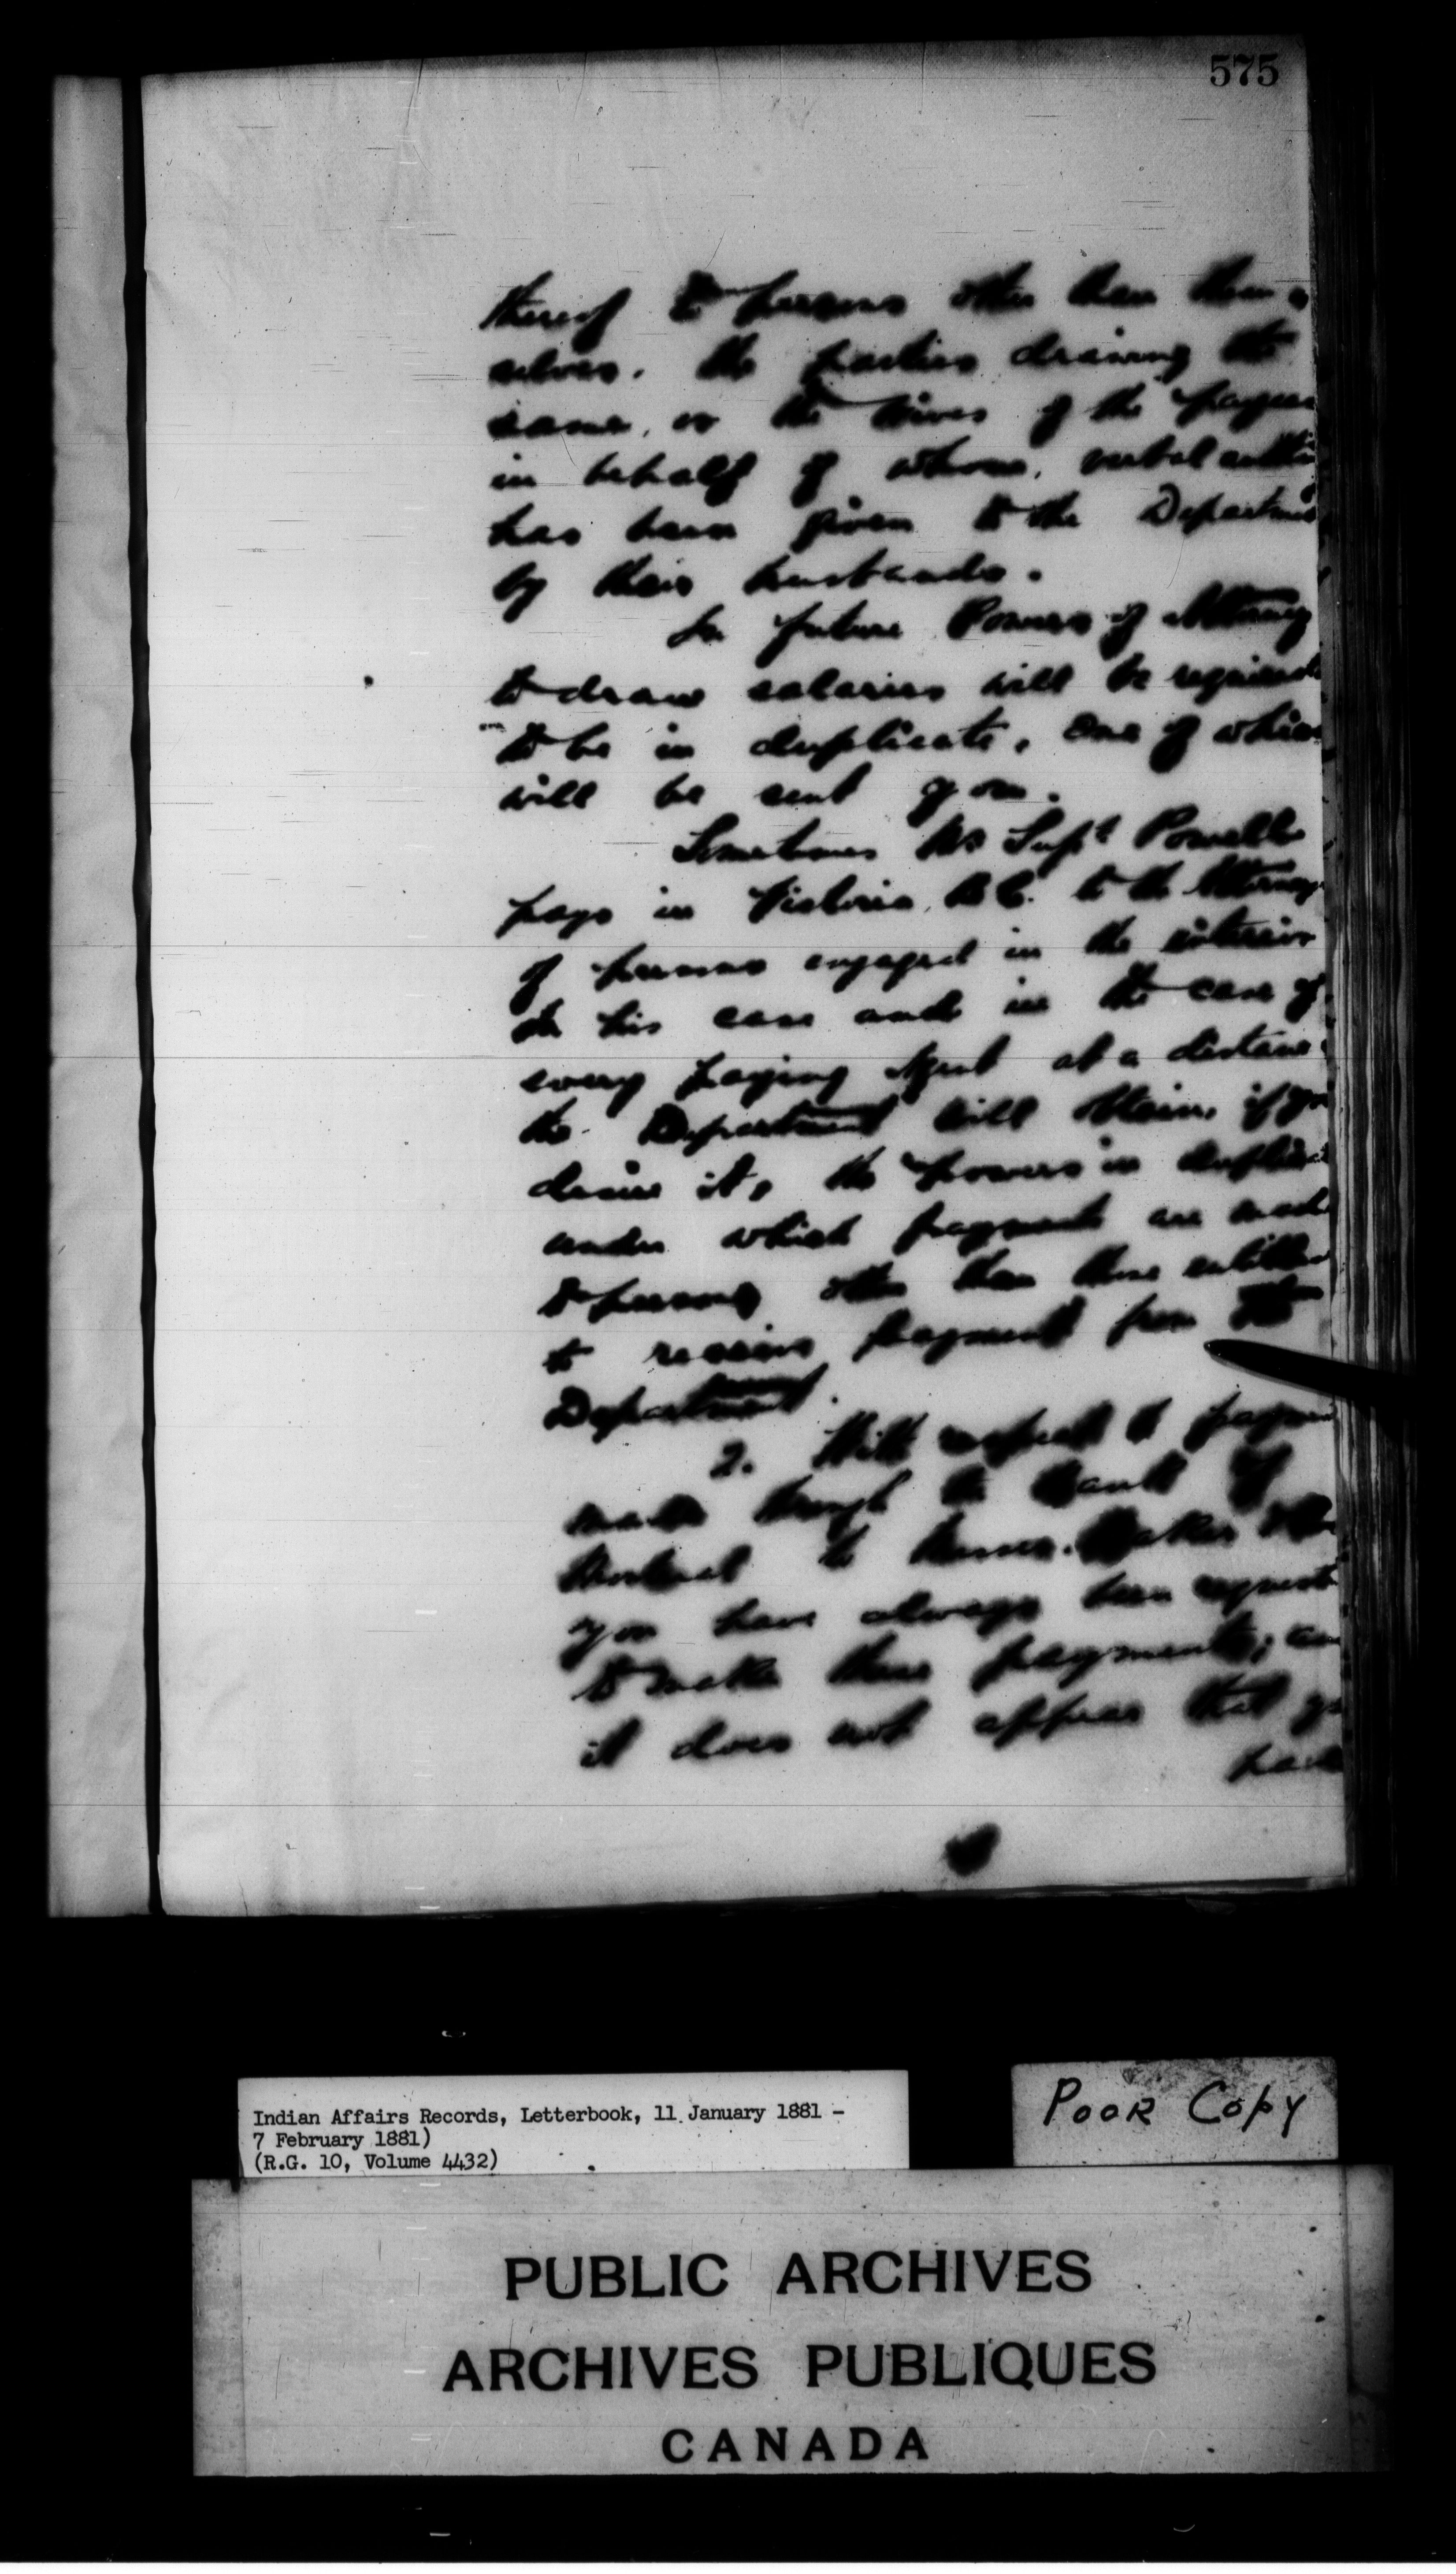 575
thereof to persons other than them
selves. the parties drawing the
same, or the wives of the payees
in behalf of whom, verbal
has been given to the Departmen
by their husbands.
In future Powers of Attorney
to draw salaries will be required
to be in duplicate, one of which
will be sent you.
Sometimes Mr Supt Powell
pays in Victoria, B.C. to the Attorney
of persons engaged in the interior
In his case and in the case of
every paying Agent at a distance
the Department will obtain, if you
desire it, the powers in duplicat
under which payments are made
to persons other than those entitled
to receive payment from the
Department.
2. With respect to paymen
made through the Bank of
Montreal to Messrs. Baker
you have always been request
to make these payments; an
it does not appear that yo
have
Indian Affairs Records, Letterbook, 11 January 1881 -
7 February 1881)
(R.G. 10, Volume 4432)
Poor Copy
PUBLIC ARCHIVES
ARCHIVES PUBLIQUES
CANADA